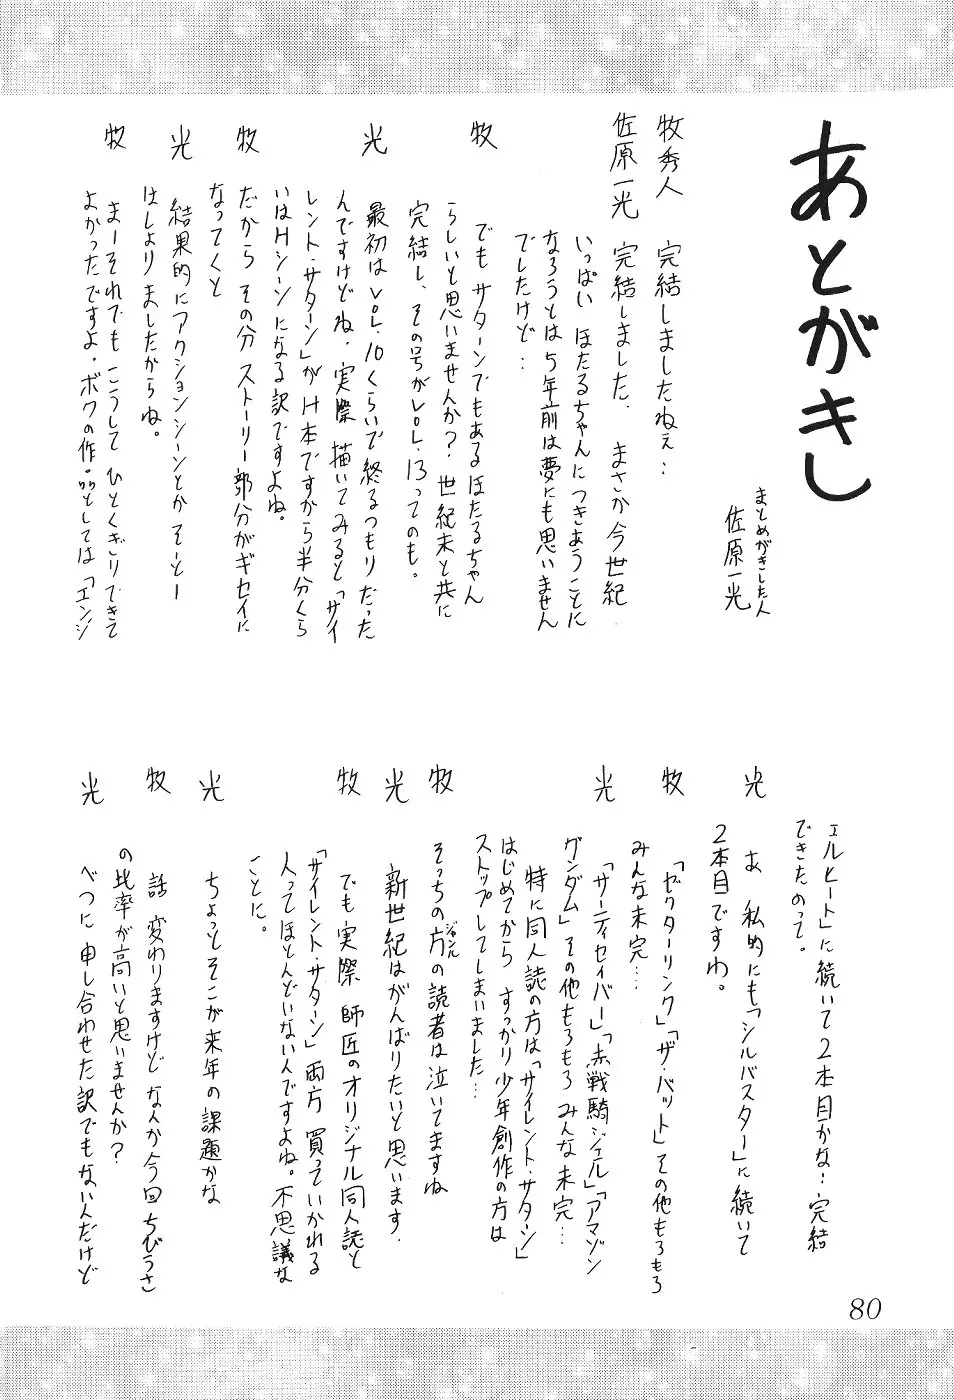 あとがき
まとめがきした人
佐原一光
牧秀人　完結しましたねぇ…
佐原一光　完結しました、まさか今世紀
いっぱい ほたるちゃんにつきあうことに
なろうとは5年前は夢にも思いません
でしたけど…
牧　でもサターンでもあるほたるちゃん
らしいと思いませんか？世紀末と共に
完結し、その号がVOL.13ってのも。
光　最初はVOL.10くらいで終るつもりだった
んですけどね、実際 描いてみると「サイ
レント・サターン」がH本ですから半分くら
いはHシーンになる訳ですよね。
牧　だから その分 ストーリー部分がギセイに
なってくと
光　結果的にアクションシーンとかそーとー
はしょりましたからね。
牧　まーそれでも こうして ひとくぎりできて
よかったですよ、ボクの作品としては「エンジ
ェルヒート」に続いて2本目かな…完結
できたのって。
光　あ 私的にも「シルバスター」に続いて
2本目ですわ。
牧　「ゼクターリンク」「ザ・バット」その他もろもろ
みんな未完…
光　「サーティセイバー」「赤戦騎ジェル」「アマゾン
ガンダム」その他もろもろ みんな未完…
特に同人誌の方は「サイレント・サターン」
はじめてから すっかり少年創作の方は
ストップしてしまいました…
牧　そっちの方の読者は泣いてますね
ジャンル
光　新世紀はがんばりたいと思います.
牧　でも実際 師匠のオリジナル同人誌と
「サイレント・サターン」両方 買っていかれる
人ってほとんどいないんですよね。不思議な
ことに。
光　ちょっとそこが来年の課題かな
牧　話 変わりますけど なんか今回ちびうさ
の比率が高いと思いませんか？
光　べつに 申し合わせた訳でもないんだけど
80